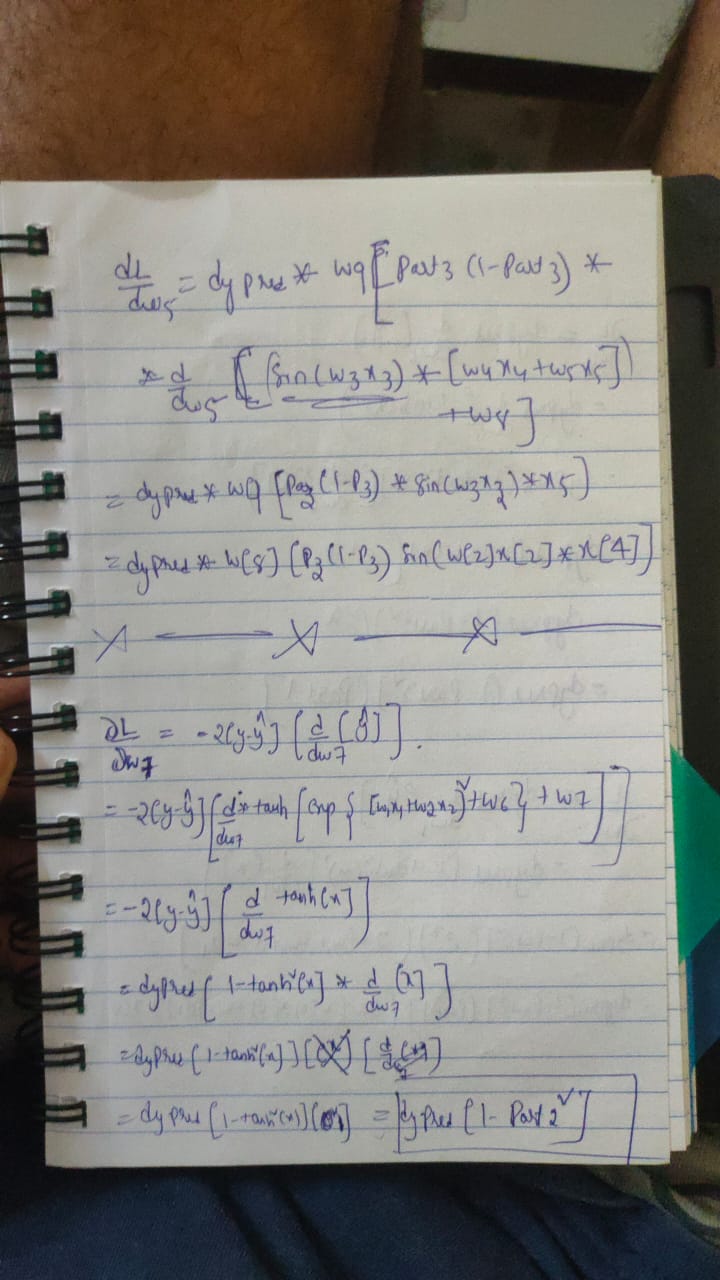 dL/dw5 = dypred * w9 [ Part3 (1-Part3) *
* d/dw5 [ (Sin(w3x3) * [w4x4+w5x5])
+w8 ]
= dypred * w9 [P3(1-P3) * Sin(w3x3) * x5]
= dypred * w[8] [P3(1-P3) Sin(w[2]x[2] * x[4]]
x — x — x —
∂L/∂w7 = -2(y-ŷ) [ d/dw7 [ŷ] ].
= -2(y-ŷ) [ d/dw7 tanh [ exp { [w1x1+w2x2]²+w6 } + w7 ] ]
= -2(y-ŷ) [ d/dw7 tanh(x) ]
= dypred [ 1-tanh²(x) * d/dw7 (x) ]
= dypred [1-tanh²(x)]
= dypred [1-tanh²(x)] = dypred [1- Part2²]